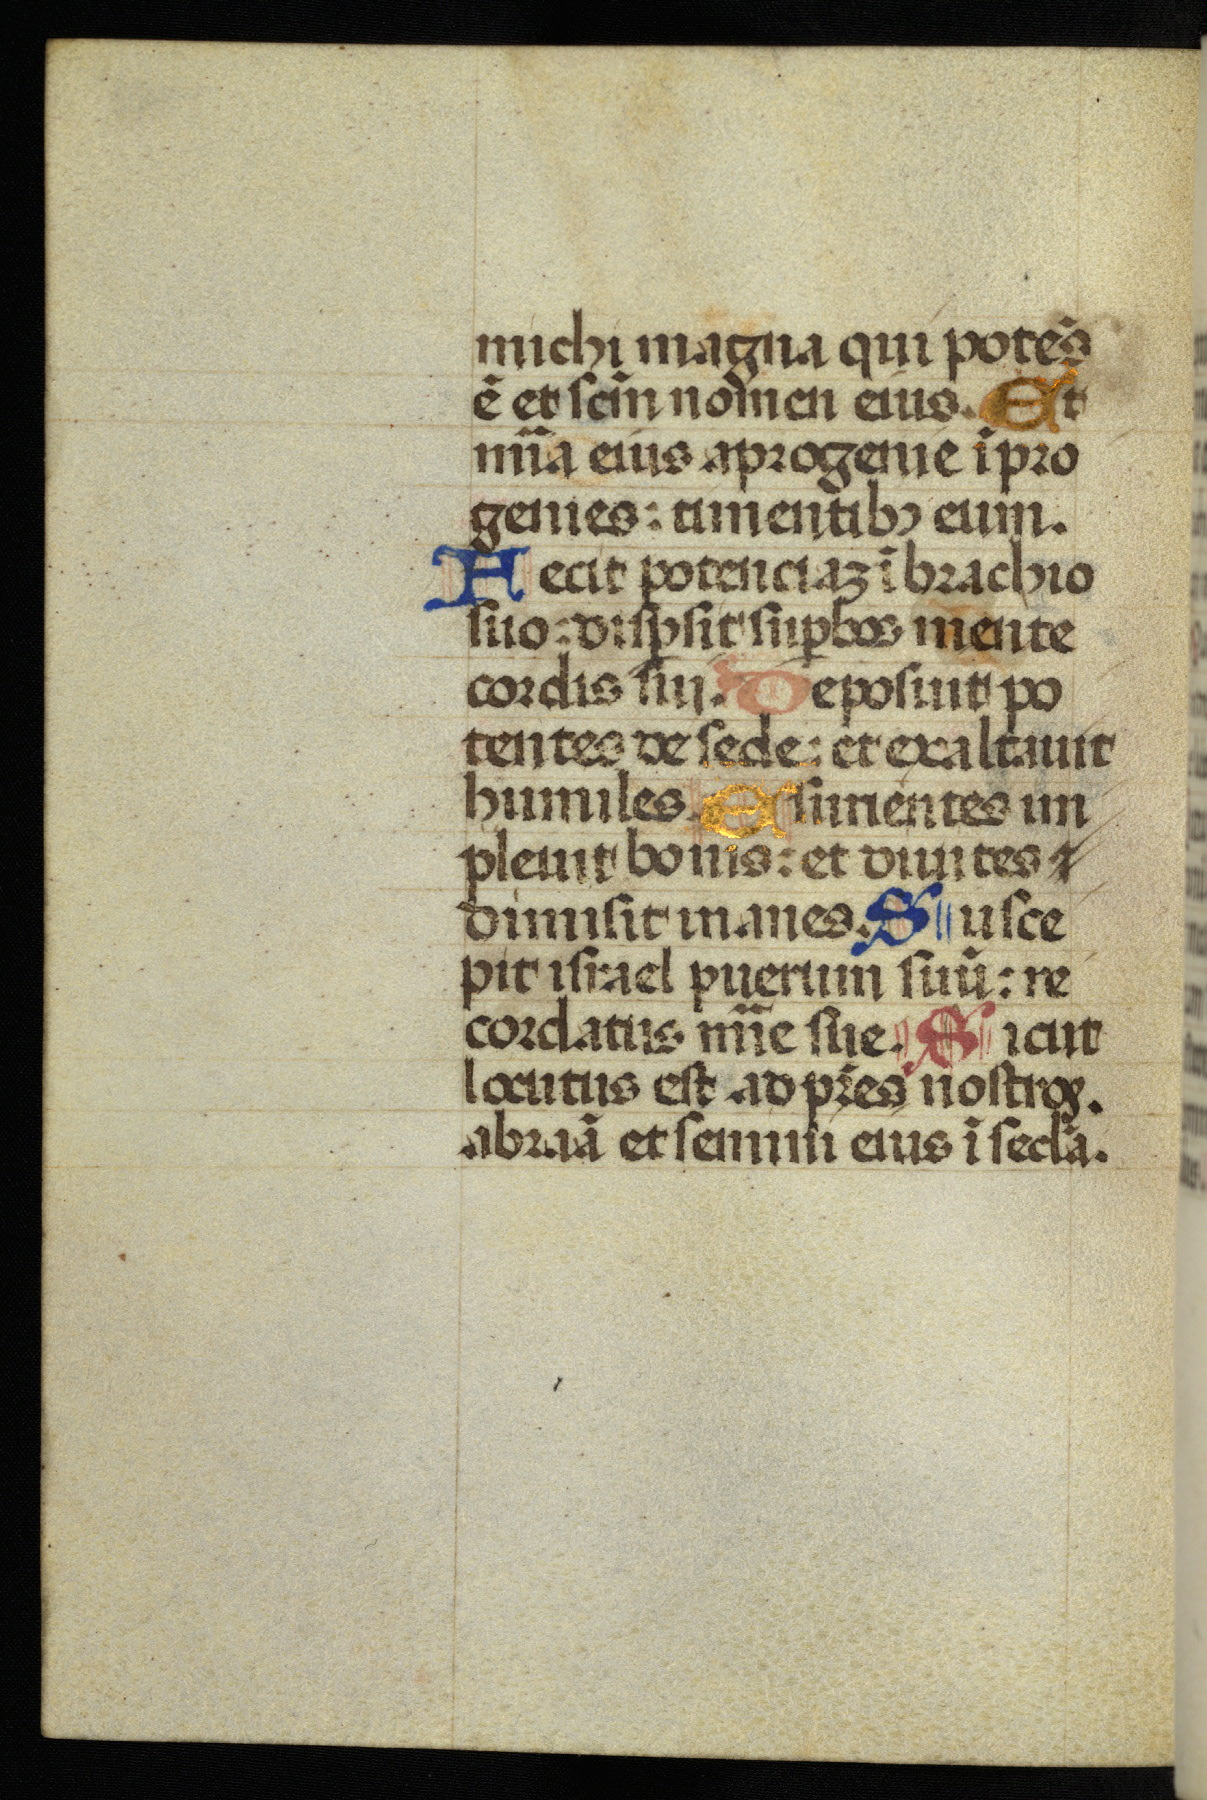 michi magna qui potẽs
ẽ et scm̃ nomen eius. Et
mĩa eius aprogenie ĩ pro
genies: timentibꝫ eum.
Fecit potenciaꝫ ĩ brachio
suo: dispsit supbos mente
cordis sui. Deposuit po
tentes de sede: et exaltauit
humiles. Esurientes im
pleuit bonis: et diuites
dimisit inanes. Susce
pit israel puerum suũ: re
cordatus mĩe sue. Sicut
locutus est ad pr̃es nostroꝝ.
abraã et semini eius ĩ secl̃a.